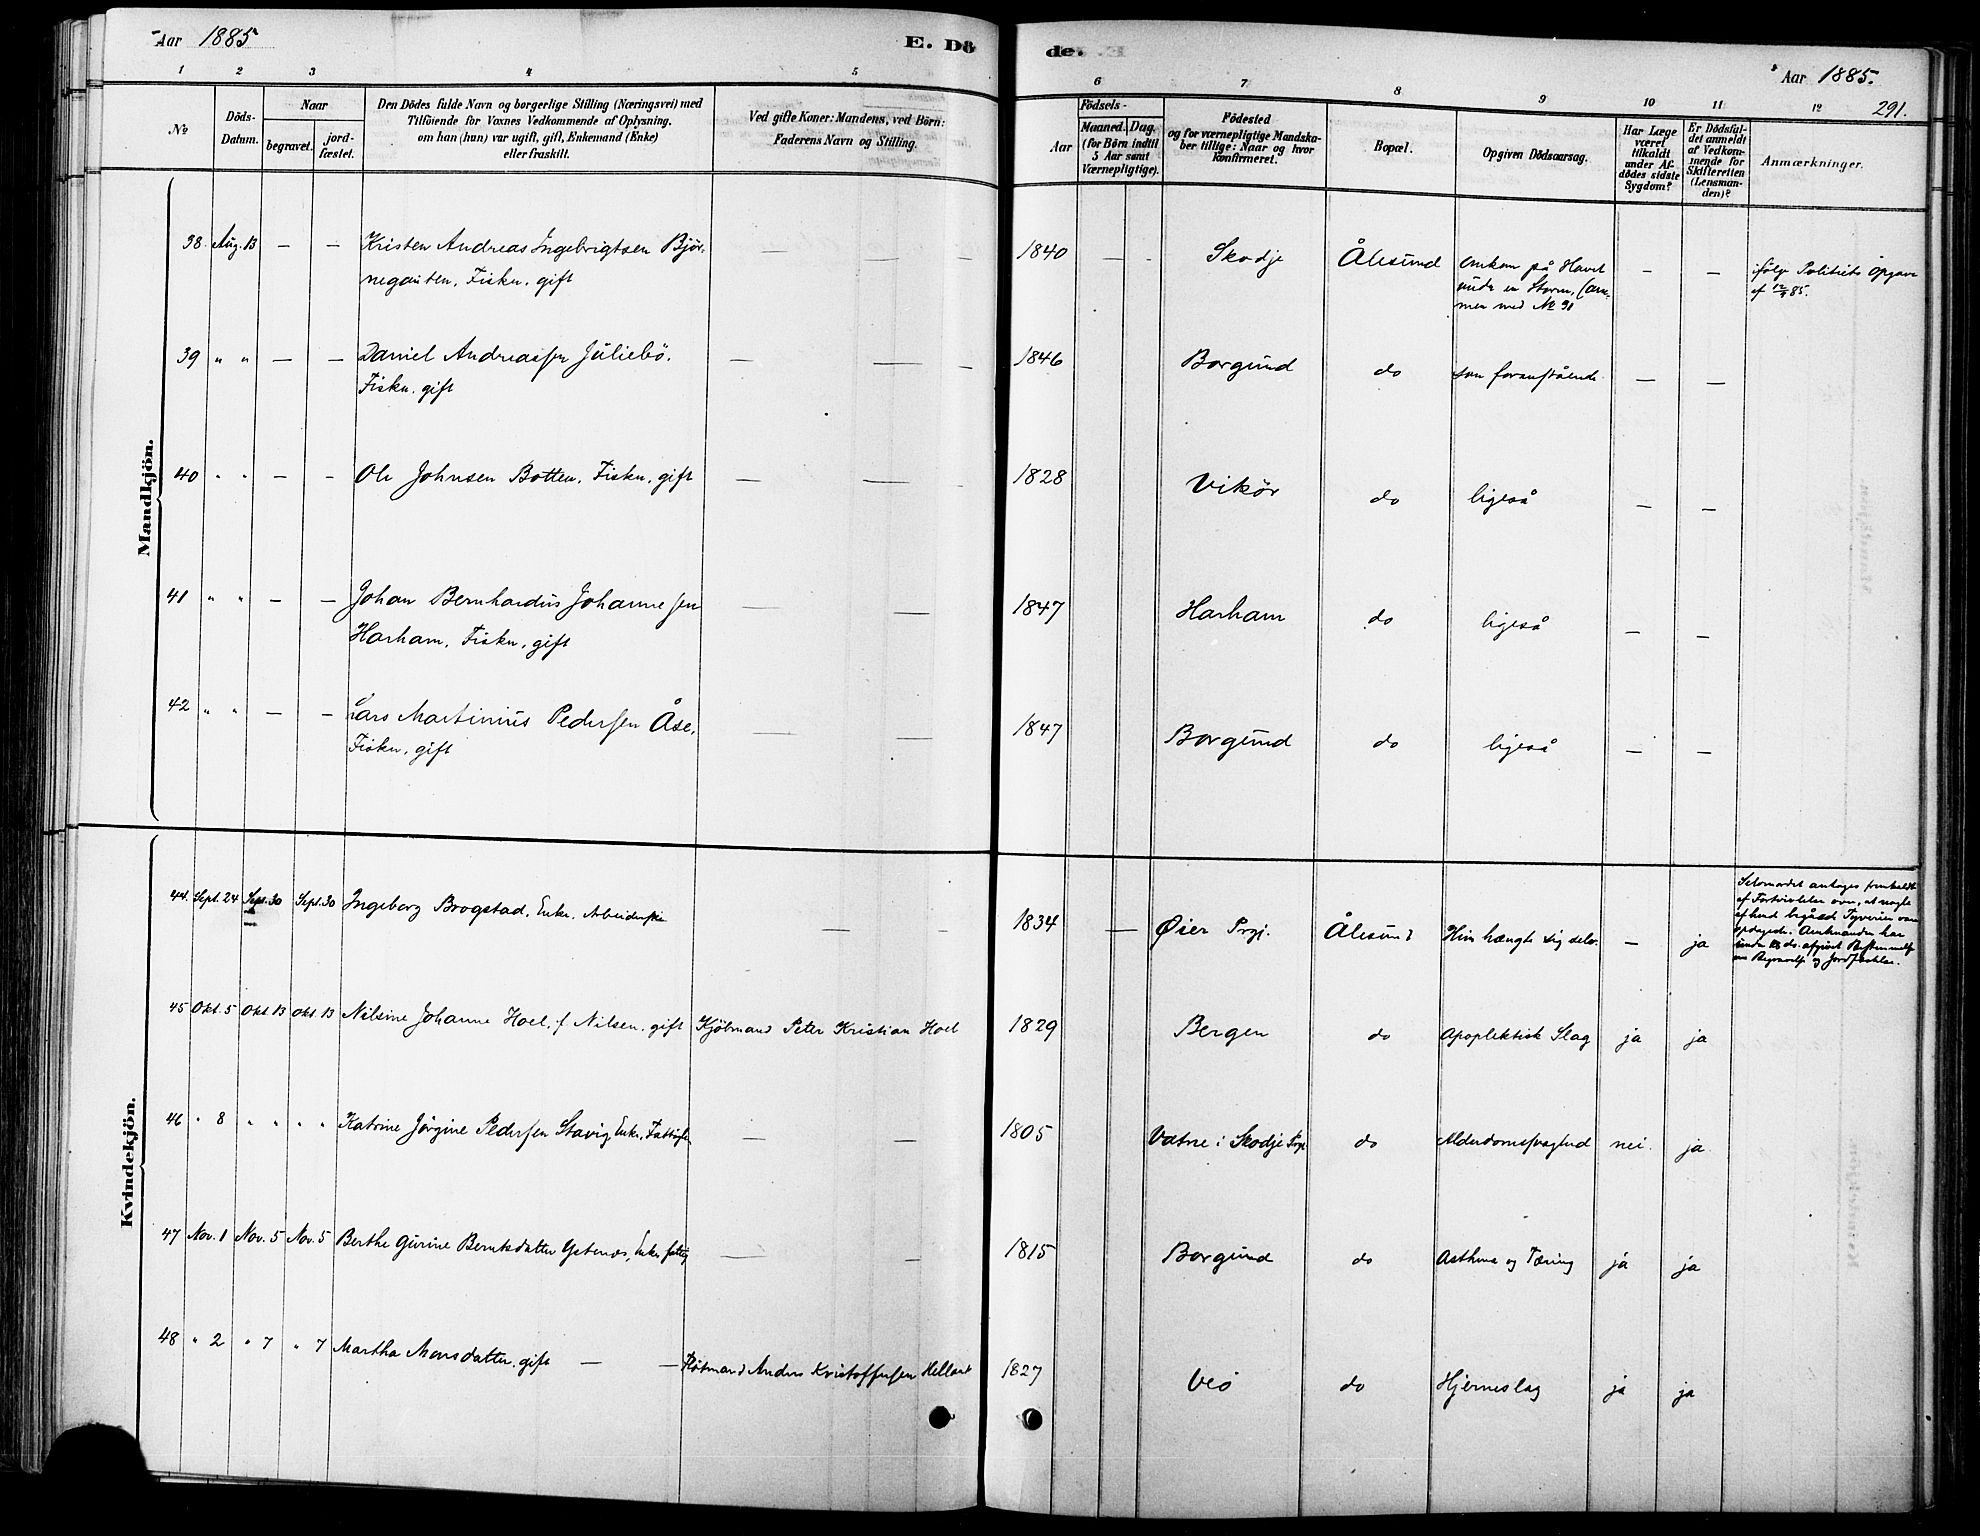 Aar 1885
E. Dö
de.
Aar 1885.
291.
1 2 3 4 5 6 7 8 9 10 11 12
No
Döds-
Datum.
Naar
begravet.
jord-
fæstet.
Den Dödes fulde Navn og borgerlige Stilling (Næringsvei) med
Tilföiende for Voxnes Vedkommende af Oplysning.
om han (hun) var ugift, gift, Enkemand (Enke)
eller fraskilt.
Ved gifte Koner: Mandens, ved Börn:
Faderens Navn og Stilling.
Födsels-
Aar
Maaned. Dag.
(for Börn indtil
5 Aar samt
Værnepligtige).
Födested
og for værnepligtige Mandska-
ber tillige: Naar og hvor
konfirmeret.
Bopæl.
Opgiven Dödsaarsag.
Har Læge
været
tilkaldt
under Af-
dödes sidste
Sygdom?
Er Dödsfal-
det anmeldt
af Vedkom-
mende for
Skifteretten
(Lensman-
den)?
Anmærkninger.
Mandkjön.
38. Aug. 13 — — Kristen Andreas Ingebrigtsen Björ-
negauten, Fisker, gift — — — 1840 — - Skodje Ålesund omkom på Havet
under en Storm, (sam-
men med No 31 — — ifölge Politiets Opgave
af 12/9 85.
39 " " — — Daniel Andreassen Juliebö.
Fisker, gift — — — 1846 Borgund do som foranstående — —
40 " " — — Ole Johnsen Botten, Fisker, gift — — - 1828 Vikör do ligeså — —
41 " " — — Johan Bernhardus Johannessen
Harham, Fisker, gift — — 1847 Harham do ligeså — —
42 " " — — Lars Martinius Pedersen Åse,
Fisker, gift — — 1847 Borgund do ligeså — —
Kvindekjön.
44. Sept. 24 Sept. 30 Sept. 30 Ingeborg Brogstad, Enke, Arbeiderske — - 1834 — Øier Prgj. Ålesund Hun hængte sig selv. — ja
Selvmordet antages fremkaldt
af Fortvivlelse over, at nogle
af hende begåede Tyverier vare
opdagede. Amtmanden har
under do. afgivet Bestemmelse
om Begravelse og Jordfæstelse.
45 Okt. 5 Okt. 13 Okt. 13 Nilsine Johanne Hoel, f. Nilsen, gift Kjöbmand Peter Kristian Hoel 1829 Bergen do Apoplektisk Slag ja ja
46 " 8 " " " " Katrine Jörgine Pedersen Stavig, Enke, Fattig — — 1805 Vatne i Skodje Prgj do Alderdomssvaghed nei. ja
47 Nov. 1 Nov. 5 Nov. 5 Berthe Gurine Berntsdatter Ystenes, Enke, fattig — — 1815 Borgund do Asthma og Tæring ja ja
48 " 2 " 7 " 7 Martha Monsdatter, gift — — Anders Kristoffersen Helland 1827 Veö do Hjerneslag ja ja